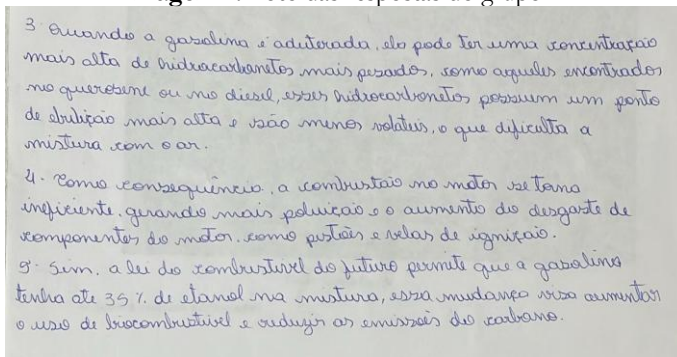 3. Quando a gasolina é aduterada, ela pode ter uma concentração
mais alta de hidracarbanetos mais pesados, como aqueles encontrados
no querosene ou no diesel, esses hidrocarbonetos possuem um ponto
de ebulição mais alta e são menos volateis, o que dificulta a
mistura com o ar.
4. Como consequência, a combustão no motor se torna
ineficiente, gerando mais poluição e o aumento do desgaste de
componentes do motor, como pistões e velas de ignição.
5. Sim, a lei do combustivel do futuro permite que a gasolina
tenha ate 35 % de etanol na mistura, essa mudança visa aumentar
o uso de biocombustivel e reduzir as emissões do carbono.